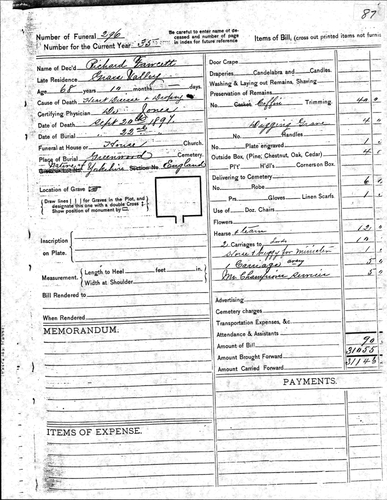 87
Number of Funeral 296
Number for the Current Year 35
Be carefull to enter name of de-
ceased and number of page
in index for future reference
Items of Bill, (cross out printed items not furnis
Name of Dec'd Richard Fawcett
Late Residence Grass Valley
Age 68 years 10 months days.
Cause of Death Heart Disease & Dropsy
Certifying Physician Dr. Jones
Date of Death Sept 20th 1897.
Date of Burial 22nd
Funeral at House or House Church.
Place of Burial Greenwood Cemetery.
Yorkshire England
Location of Grave
Draw lines for Graves in the Plot, and
designate this one with a double Cross
Show position of monument by
Inscription
on Plate.
Measurement. Length to Heel feet in.
Width at Shoulder in.
Bill Rendered to
When Rendered
MEMORANDUM.
ITEMS OF EXPENSE.
Door Crape
Draperies Candelabra and Candles
Washing & Laying out Remains, Shaving
Preservation of Remains
No Casket Coffin Trimming. 40
Digging Grave 4
No Handles
Plate engraved 1
Outside Box, (Pine, Chestnut, Oak, Cedar) 4
Pr'r H'd'l's Corners on Box.
Delivering to Cemetery 6
No Robe
Prs. Gloves Linen Scarfs 1
Use of Doz. Chairs
Flowers
Hearse & team 12
2 Carriages to 10
Horse & buggy for minister 1
1 Carriage 5
Mr Champion service 5
Advertising
Cemetery charges
Transportation Expenses, &c
Attendance & Assistants
Amount of Bill 90
Amount Brought Forward 31055
Amount Carried Forward 31146
PAYMENTS.